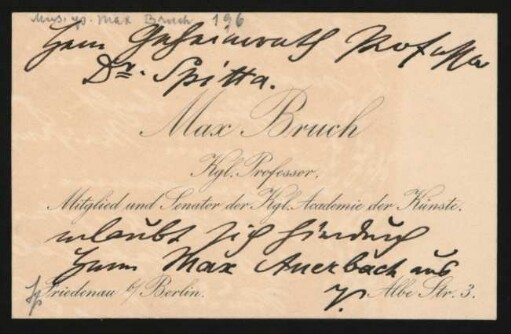 Mus. ep. Max Bruch 196
Herrn Geheimrath Professor
Dr. Spitta.
Max Bruch
Kgl. Professor.
Mitglied und Senator der Kgl. Academie der Künste.
erlaubt sich hierdurch
Herrn Max Auerbach aus
Friedenau b/ Berlin.
Albe Str. 3.